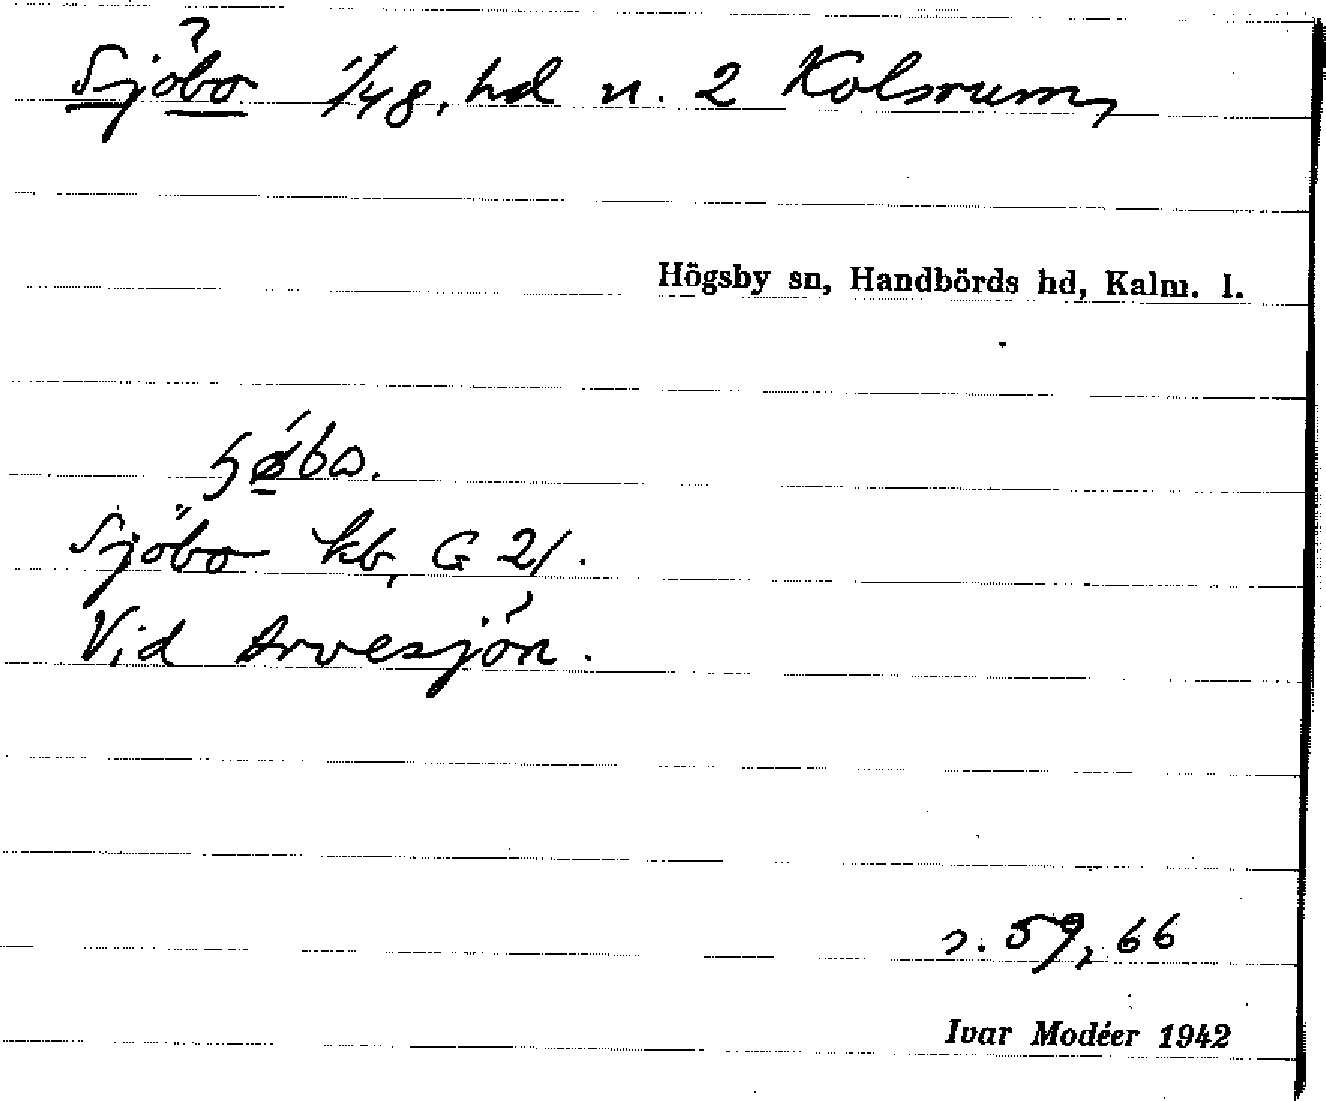 Sjöbo 1/48, hd n. 2 Kolsrum,
Högsby sn, Handbörds hd, Kalm. l.
Sjöbo kb, G 21.
Vid Arvesjön.
s. 59, 66
Ivar Modéer 1942